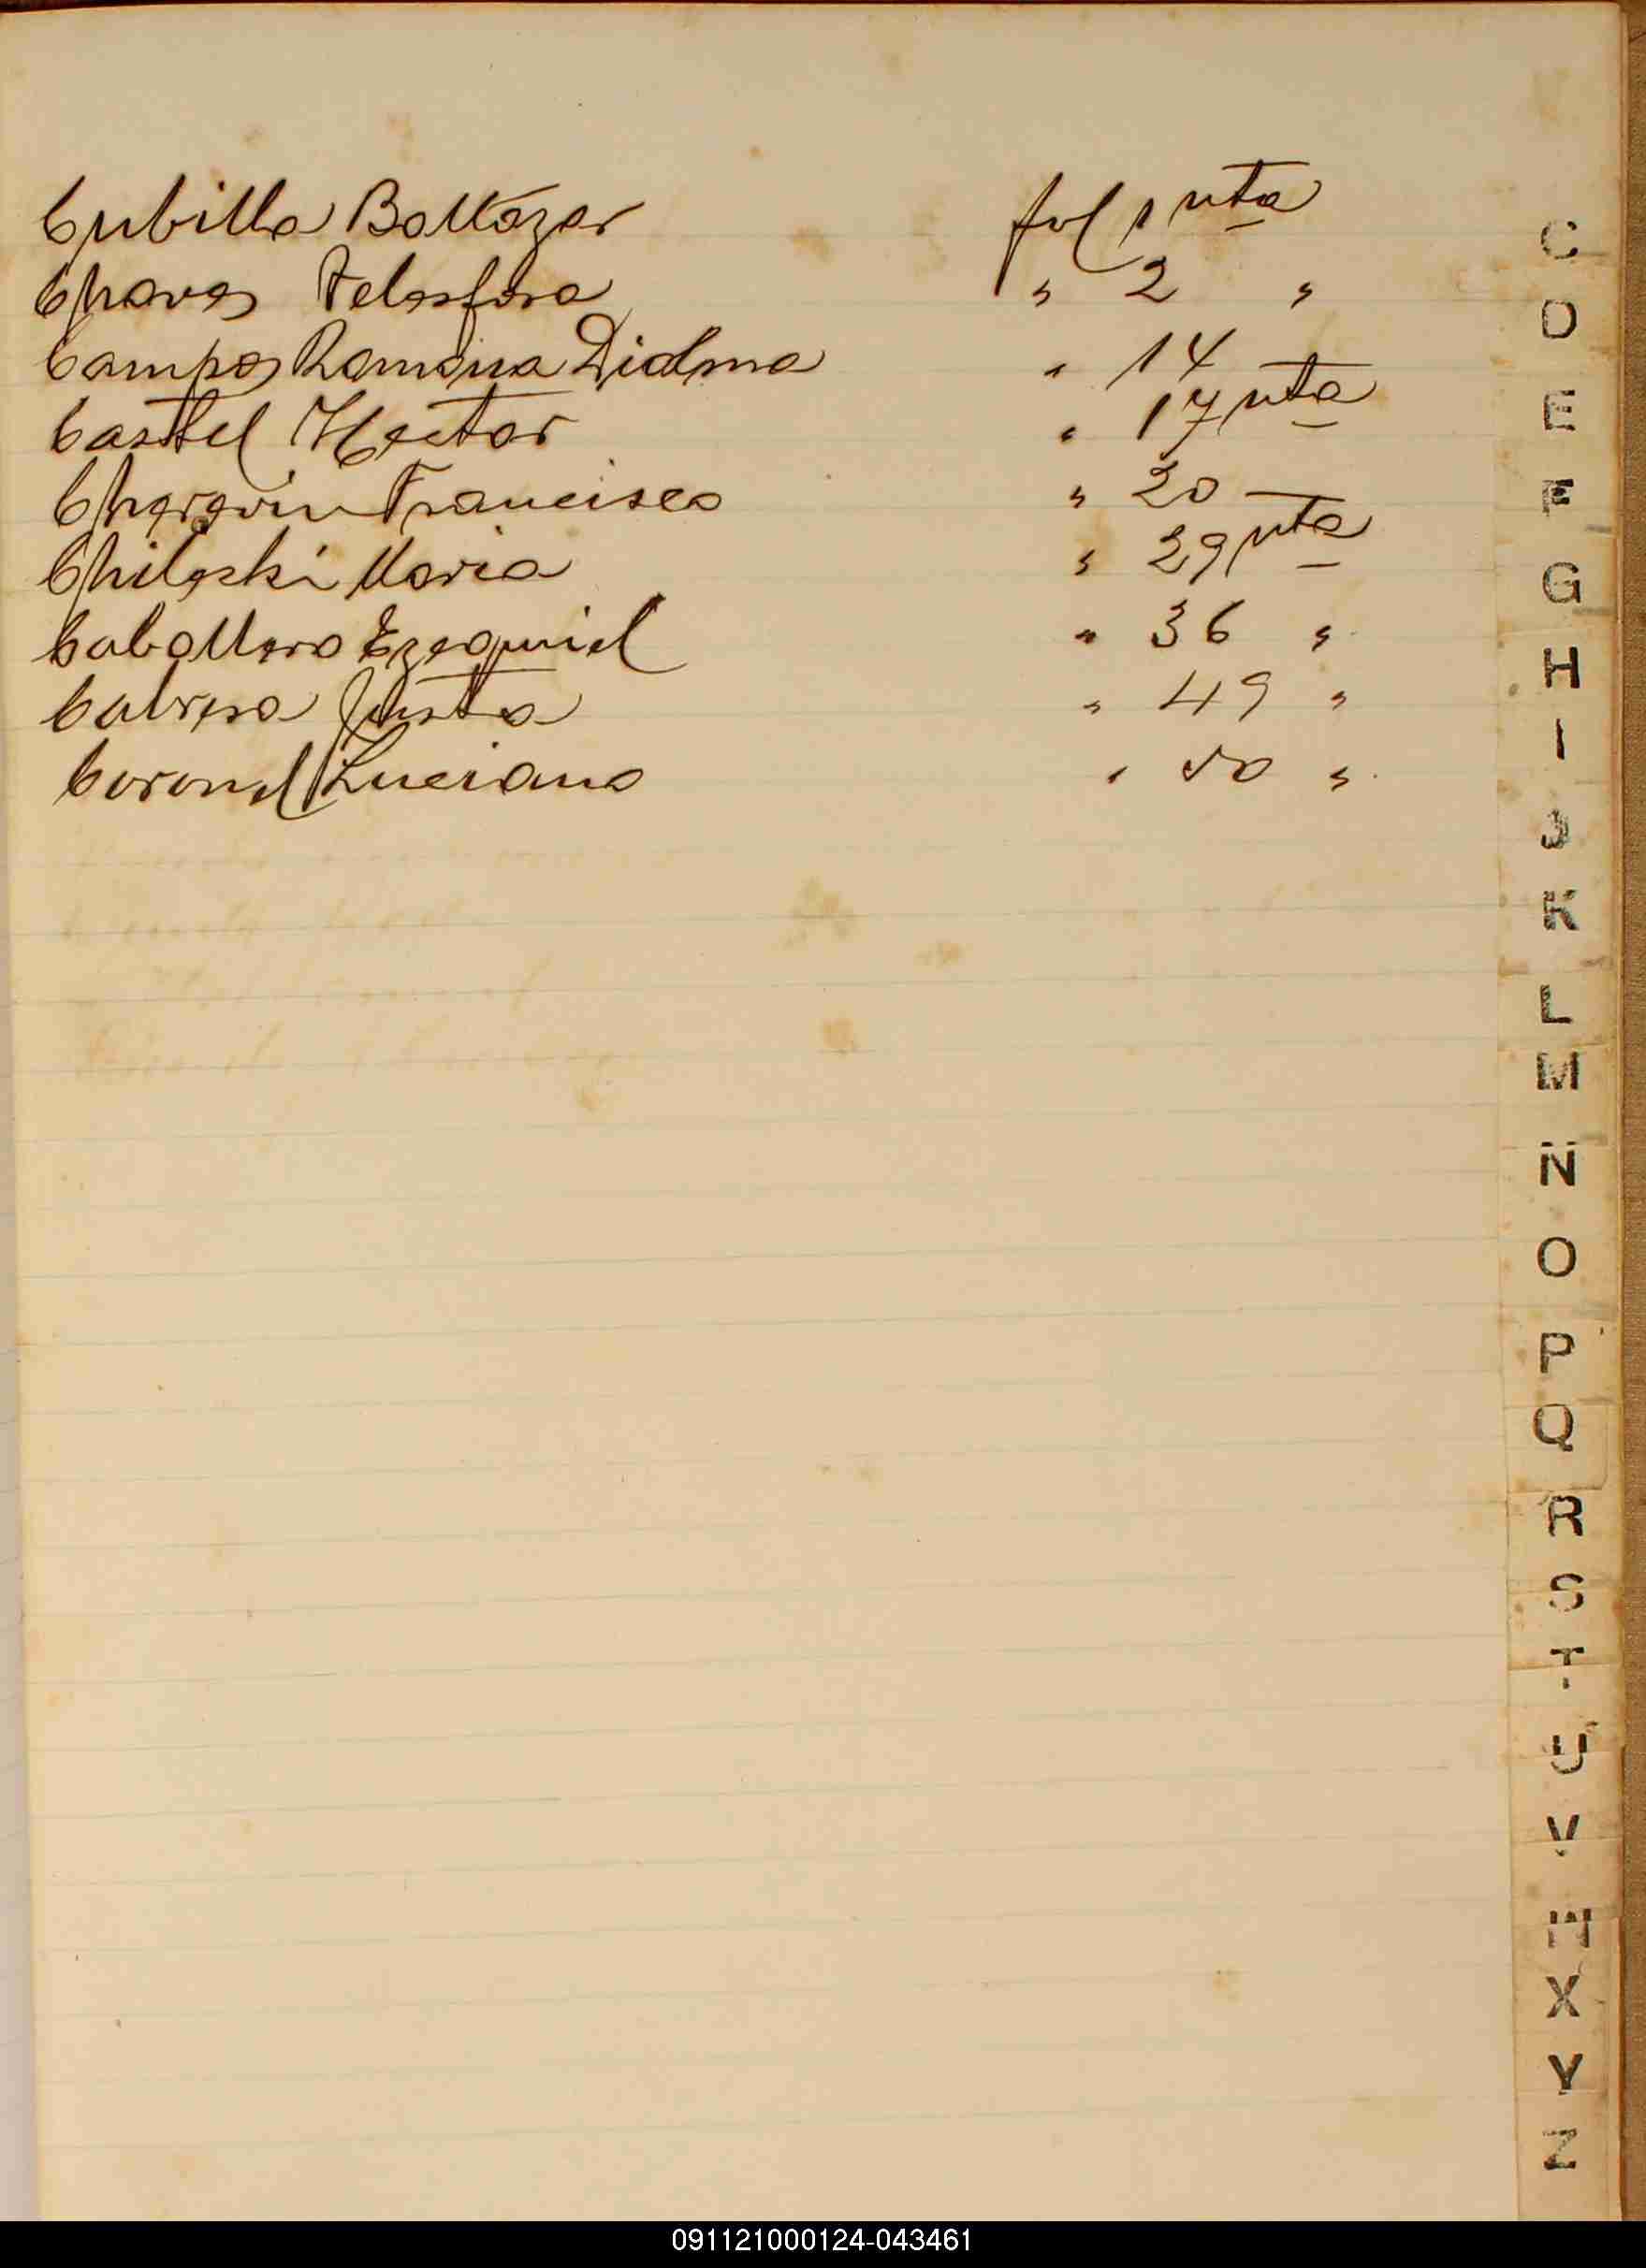 Cubilla Baltazar fol 1 vta
Chaves Telesfora " 2 "
Campos Ramona Didma " 14
Castel Hector " 17 vta
Francisco " 20 —
Maria " 29 vta
Caballero Ezequiel " 36 "
Cabrera Justa " 49 "
Coronel Luciano " 50 "
C
D
E
F
G
H
I
J
K
L
M
Ñ
O
P
Q
R
S
T
U
V
W
X
Y
Z
091121000124-043461